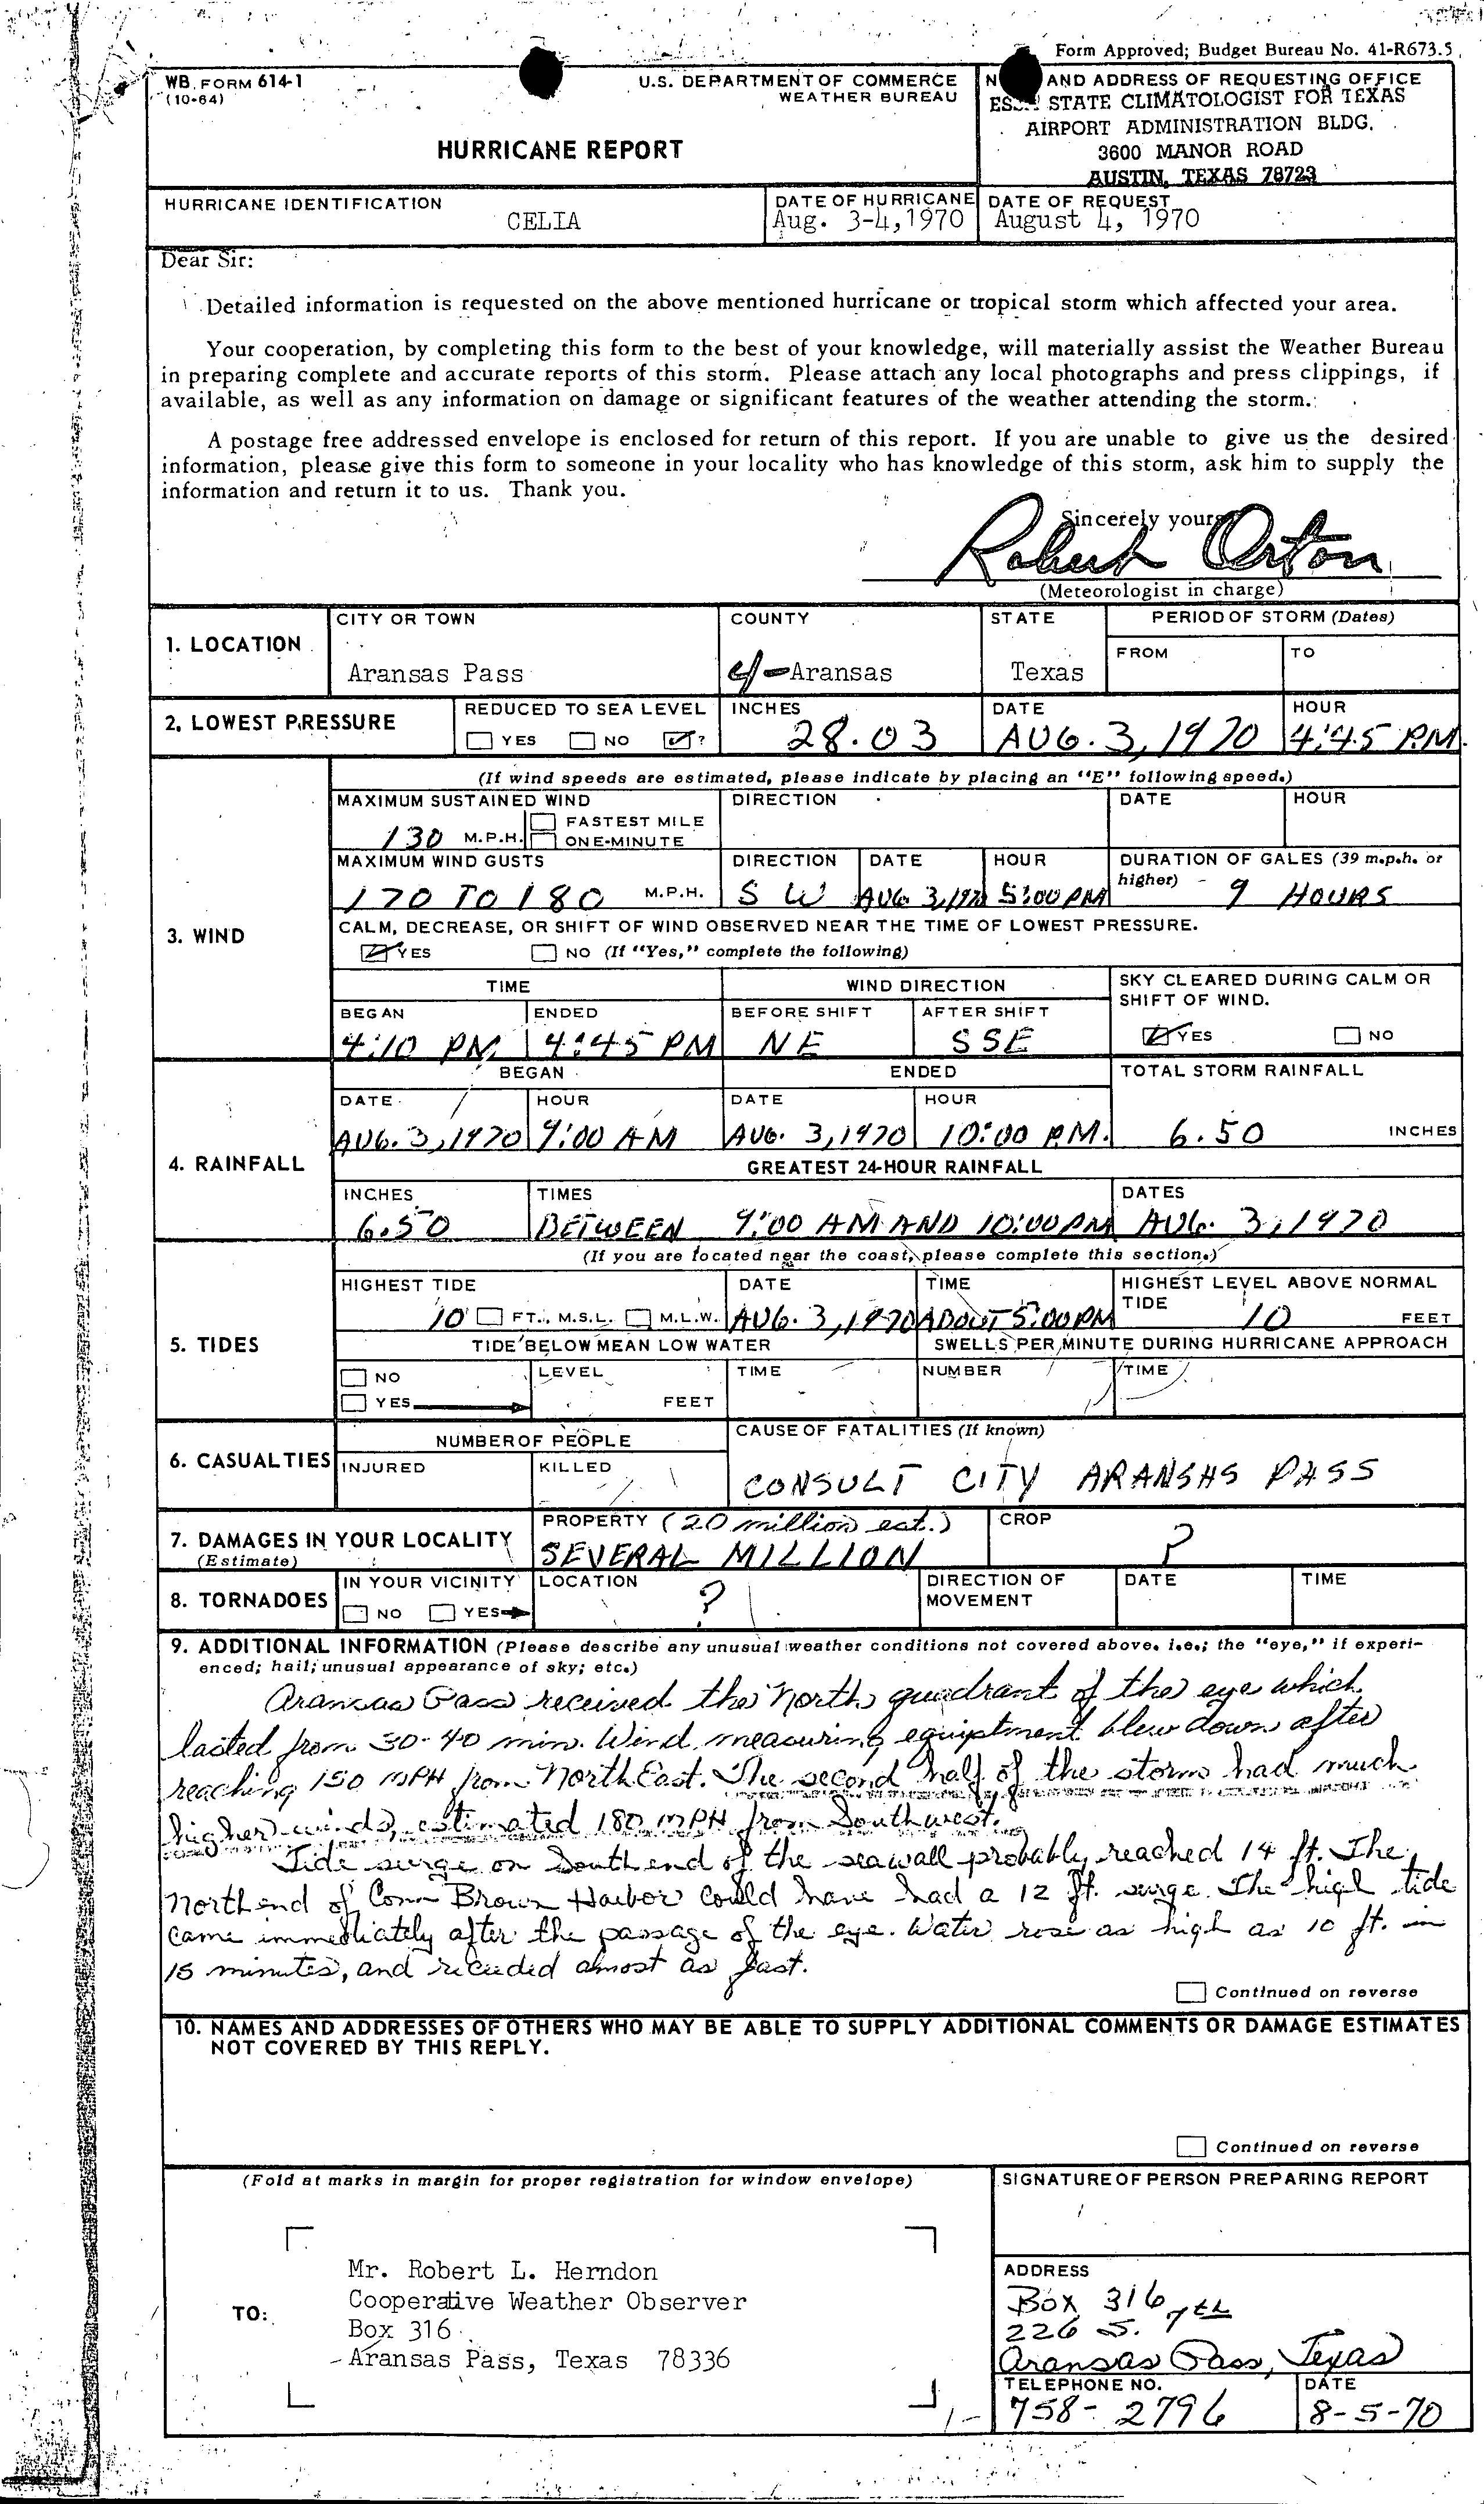 Form Approved; Budget Bureau No. 41-R673.5
WB FORM 614-1
(10-64)
U.S. DEPARTMENT OF COMMERCE
WEATHER BUREAU
HURRICANE REPORT
AND ADDRESS OF REQUESTING OFFICE
STATE CLIMATOLOGIST FOR TEXAS
AIRPORT ADMINISTRATION BLDG.
3600 MANOR ROAD
AUSTIN, TEXAS 78723
HURRICANE IDENTIFICATION
CELIA
DATE OF HURRICANE
Aug. 3-4,1970
DATE OF REQUEST
August 4, 1970
Dear Sir:
Detailed information is requested on the above mentioned hurricane or tropical storm which affected your area.
Your cooperation, by completing this form to the best of your knowledge, will materially assist the Weather Bureau
in preparing complete and accurate reports of this storm. Please attach any local photographs and press clippings, if
available, as well as any information on damage or significant features of the weather attending the storm.
A postage free addressed envelope is enclosed for return of this report. If you are unable to give us the desired
information, please give this form to someone in your locality who has knowledge of this storm, ask him to supply the
information and return it to us. Thank you.
Sincerely yours
Robert Orton
(Meteorologist in charge)
1. LOCATION
CITY OR TOWN
Aransas Pass
COUNTY
Aransas
STATE
Texas
PERIOD OF STORM (Dates)
FROM
TO
2. LOWEST PRESSURE
REDUCED TO SEA LEVEL
YES NO ?
INCHES
28.03
DATE
AUG. 3, 1970
HOUR
4:45 P.M.
3. WIND
(If wind speeds are estimated, please indicate by placing an "E" following speed.)
MAXIMUM SUSTAINED WIND
130 M.P.H.
FASTEST MILE
ONE-MINUTE
DIRECTION
DATE
HOUR
MAXIMUM WIND GUSTS
170 TO 180 M.P.H.
DIRECTION
S W
DATE
AUG 3, 1970
HOUR
5:00 PM
DURATION OF GALES (39 m.p.h. or
higher)
9 HOURS
CALM, DECREASE, OR SHIFT OF WIND OBSERVED NEAR THE TIME OF LOWEST PRESSURE.
YES NO (If "Yes," complete the following)
TIME
WIND DIRECTION
SKY CLEARED DURING CALM OR
SHIFT OF WIND.
YES NO
BEGAN
4:10 PM
ENDED
4:45 PM
BEFORE SHIFT
NE
AFTER SHIFT
SSE
4. RAINFALL
BEGAN
ENDED
TOTAL STORM RAINFALL
6.50 INCHES
DATE
AUG. 3, 1970
HOUR
9:00 AM
DATE
AUG. 3, 1970
HOUR
10:00 P.M.
GREATEST 24-HOUR RAINFALL
INCHES
6.50
TIMES
BETWEEN 9:00 AM AND 10:00 PM
DATES
AUG. 3, 1970
5. TIDES
(If you are located near the coast, please complete this section.)
HIGHEST TIDE
10 FT., M.S.L. M.L.W.
DATE
AUG. 3, 1970
TIME
ABOUT 5:00 PM
HIGHEST LEVEL ABOVE NORMAL
TIDE
10 FEET
TIDE BELOW MEAN LOW WATER
SWELLS PER MINUTE DURING HURRICANE APPROACH
NO
YES
LEVEL
FEET
TIME
NUMBER
TIME
6. CASUALTIES
NUMBER OF PEOPLE
INJURED
KILLED
CAUSE OF FATALITIES (If known)
CONSULT CITY ARANSAS PASS
7. DAMAGES IN YOUR LOCALITY
(Estimate)
PROPERTY (20 million est.)
SEVERAL MILLION
CROP
?
8. TORNADOES
IN YOUR VICINITY
NO YES
LOCATION
?
DIRECTION OF
MOVEMENT
DATE
TIME
9. ADDITIONAL INFORMATION (Please describe any unusual weather conditions not covered above. i.e.; the "eye," if experi-
enced; hail; unusual appearance of sky; etc.)
Aransas Pass received the North quadrant of the eye which
lasted from 30-40 min. Wind measuring equiptment blew down after
reaching 150 MPH from NorthEast. The second half of the storm had much
higher winds, estimated 180 MPH from Southwest.
Tide surge on South end of the seawall probably reached 14 ft. The
North end of Conn Brown Harbor could have had a 12 ft. surge. The high tide
came immediately after the passage of the eye. Water rose as high as 10 ft. in
15 minutes, and receeded almost as fast.
Continued on reverse
10. NAMES AND ADDRESSES OF OTHERS WHO MAY BE ABLE TO SUPPLY ADDITIONAL COMMENTS OR DAMAGE ESTIMATES
NOT COVERED BY THIS REPLY.
Continued on reverse
(Fold at marks in margin for proper registration for window envelope)
TO:
Mr. Robert L. Herndon
Cooperative Weather Observer
Box 316
Aransas Pass, Texas 78336
SIGNATURE OF PERSON PREPARING REPORT
ADDRESS
Box 316
226 S. 7th
Aransas Pass, Texas
TELEPHONE NO.
758-2796
DATE
8-5-70